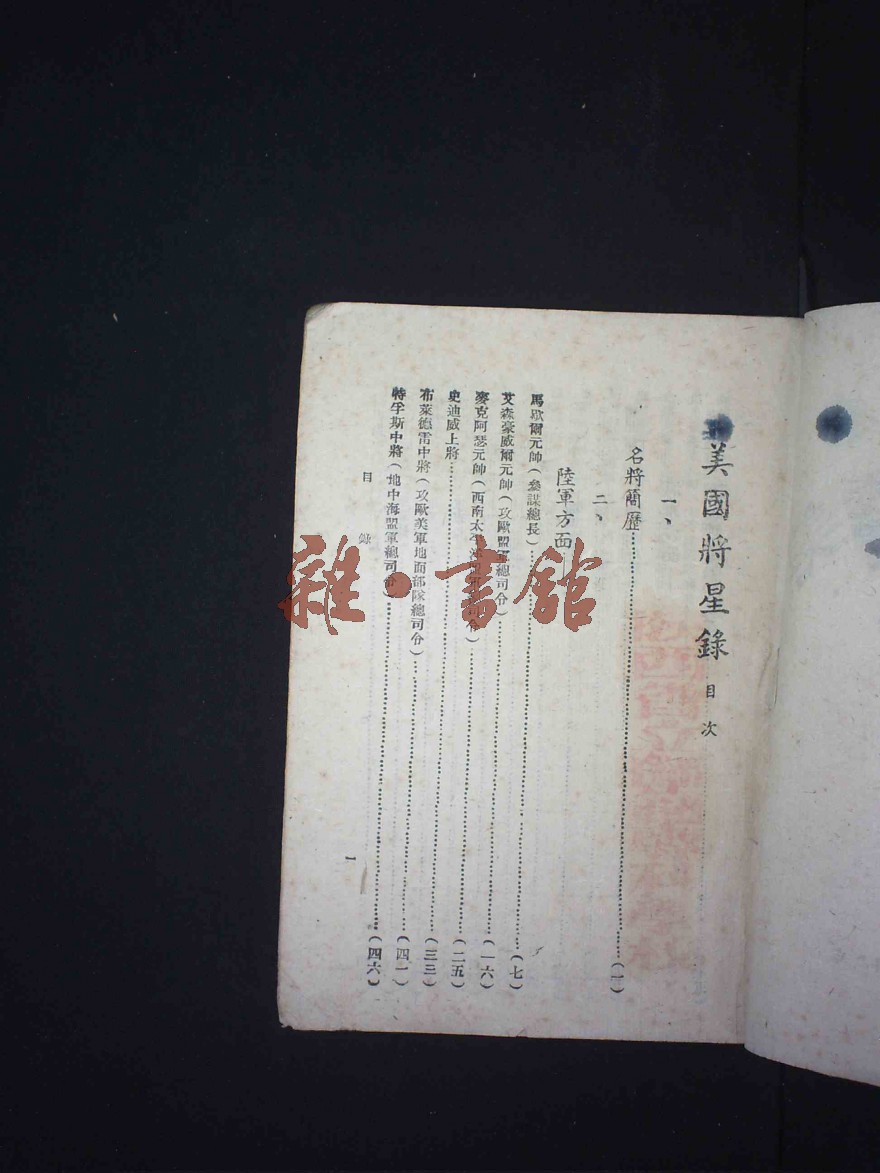 美國將星錄 目次
一、
名將簡歷……(一)
二、
陸軍方面
馬歇爾元帥(參謀總長)……(七)
艾森豪威爾元帥(攻歐盟軍總司令)……(一六)
麥克阿瑟元帥(西南太平洋盟軍總司令)……(二五)
史迪威上將……(三三)
布萊德雷中將(攻歐美軍地面部隊總司令)……(四一)
特孚斯中將(地中海盟軍總司令)……(四六)
目錄
一
雜·書館